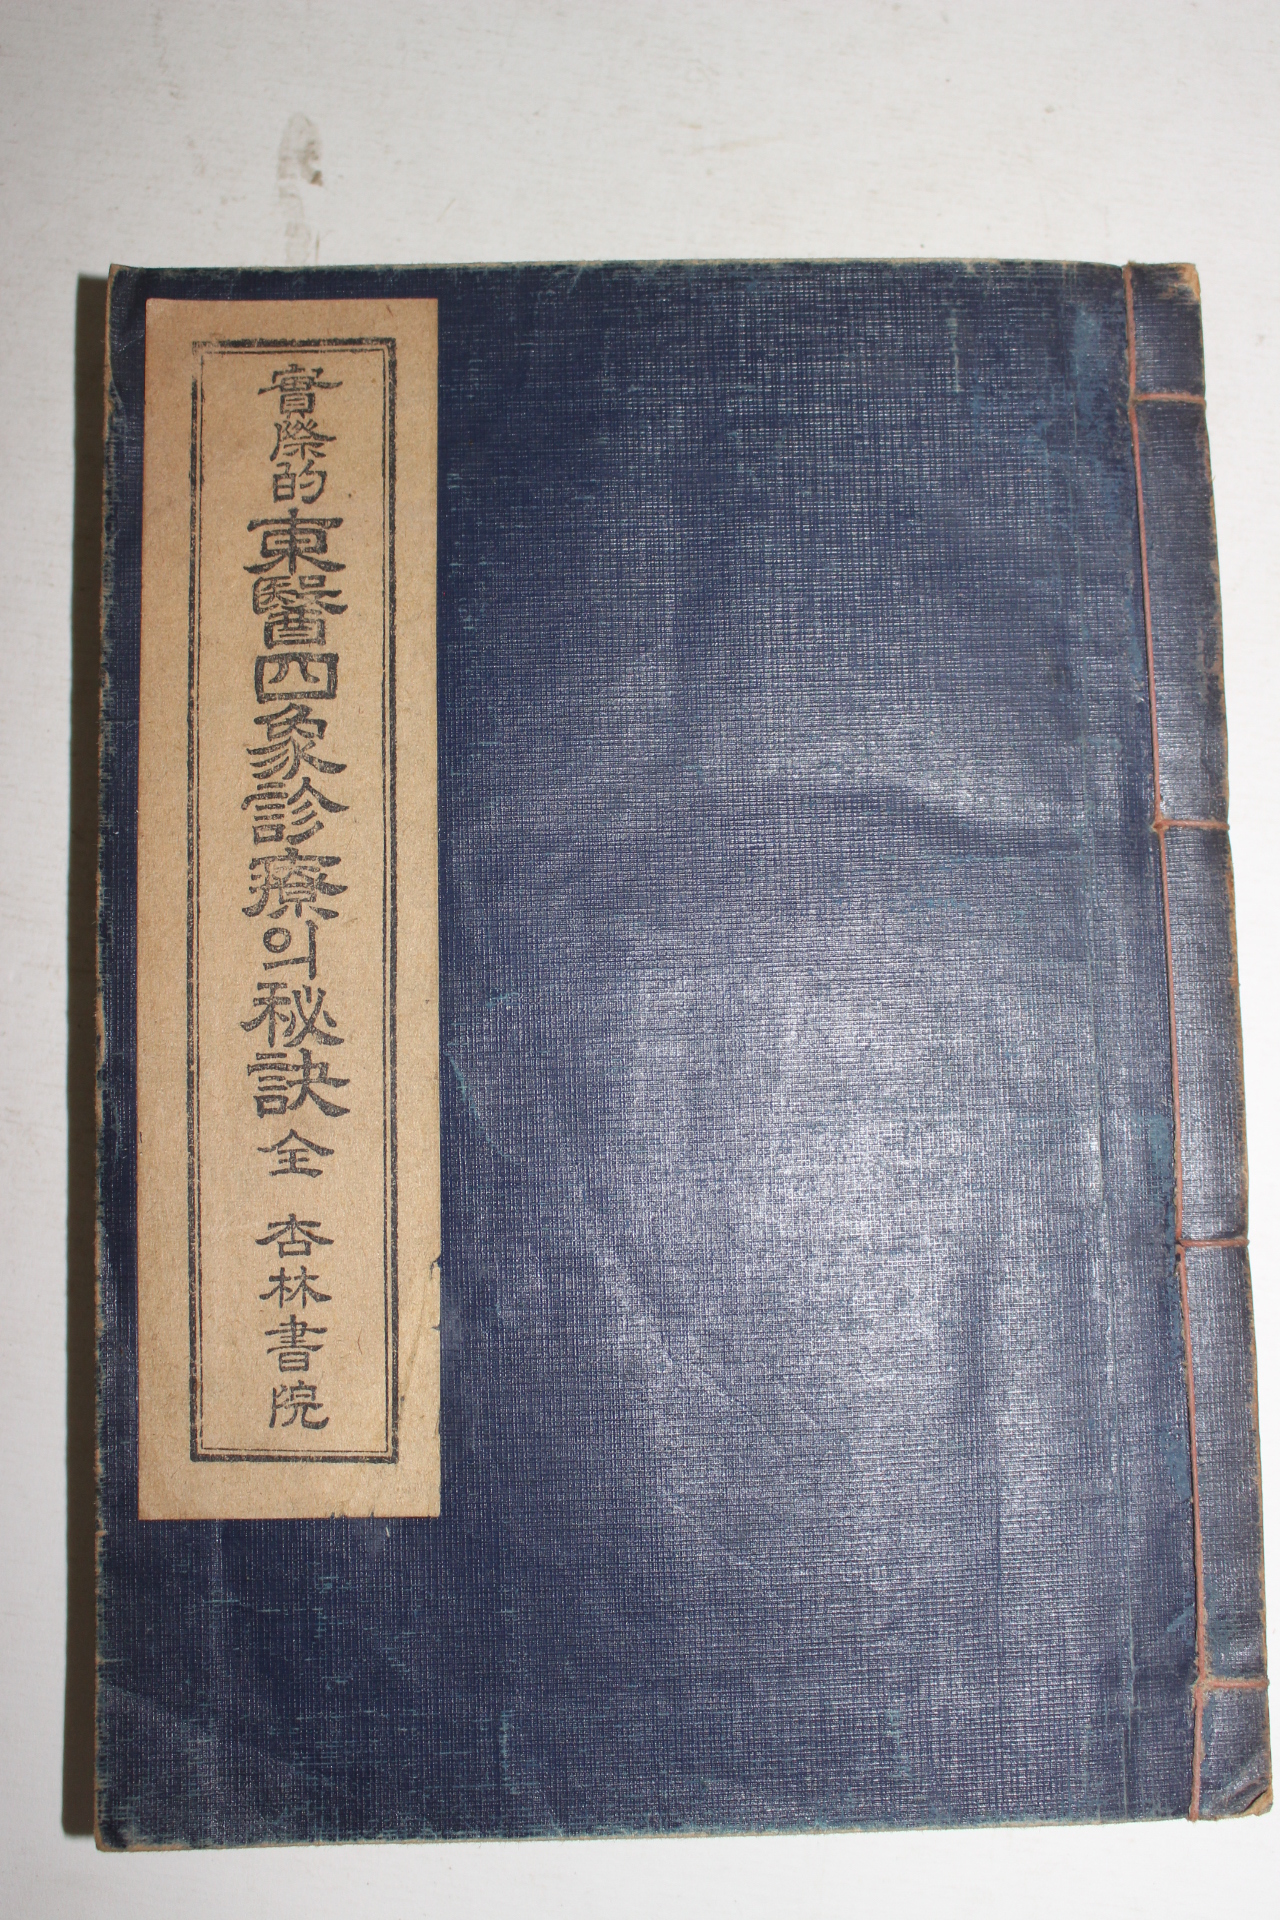 實際的東醫四象診療의秘訣 全 杏林書院